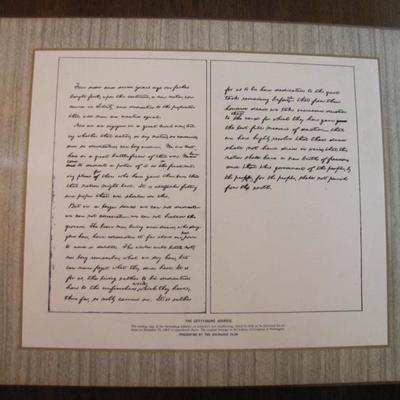 Four score and seven years ago our fathers
brought forth, upon this continent, a new nation, con-
ceived in liberty, and dedicated to the proposition
that all men are created equal.
Now we are engaged in a great civil war, test-
ing whether that nation, or any nation, so conceived,
and so dedicated, can long endure. We are met
here on a great battle-field of that war. We
to dedicate a portion of it as the final rest-
ing place of those who here gave their lives that
that nation might live. It is altogether fitting
and proper that we should do this.
But in a larger sense we can not dedicate
we can not consecrate we can not hallow this
ground. The brave men, living and dead, who strug-
gled here, have consecrated it far above our poor
to add or detract. The world will little note,
nor long remember, what we say here, but
can never forget what they did here. It is
for us, the living, rather to be dedicated
here to the unfinished work which they have,
thus far, so nobly carried on. It is rather
for us to be here dedicated to the great
task remaining before us that from these
honored dead we take increased devotion
to the cause for which they here gave
the last full measure of devotion that
we here highly resolve that these dead
shall not have died in vain; that the
nation shall have a new birth of freedom,
and that this government of the people, by
the people, for the people, shall not perish
from the earth.
THE GETTYSBURG ADDRESS
PRESENTED BY THE EXCHANGE CLUB